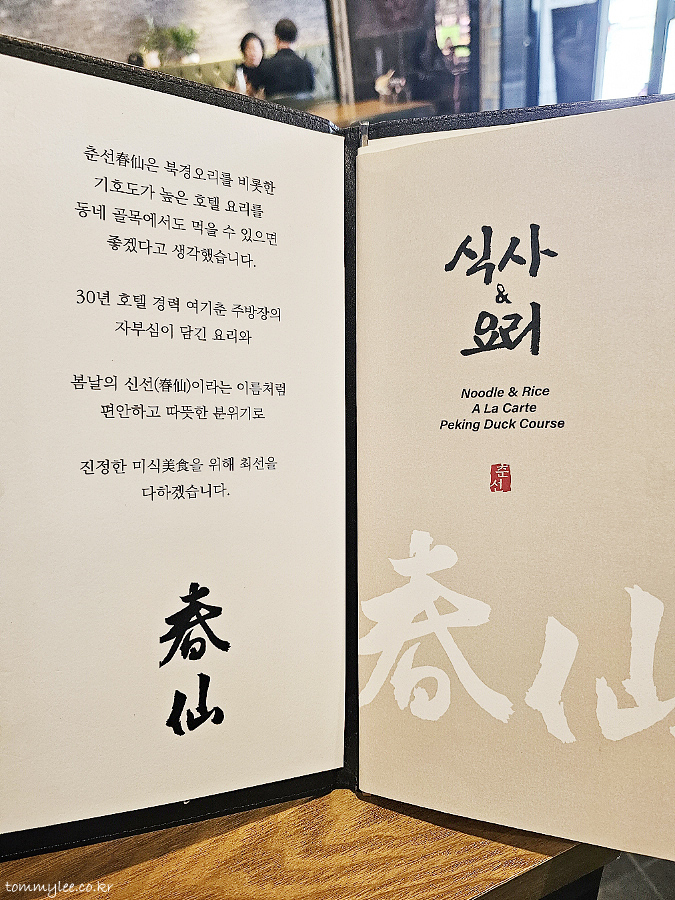 춘선春仙은 북경오리를 비롯한
기호도가 높은 호텔 요리를
동네 골목에서도 먹을 수 있으면
좋겠다고 생각했습니다.
30년 호텔 경력 여기춘 주방장의
자부심이 담긴 요리와
봄날의 신선(春仙)이라는 이름처럼
편안하고 따뜻한 분위기로
진정한 미식美食을 위해 최선을
다하겠습니다.
春
仙
식사
&
요리
Noodle & Rice
A La Carte
Peking Duck Course
춘
선
春仙
tommylee.co.kr